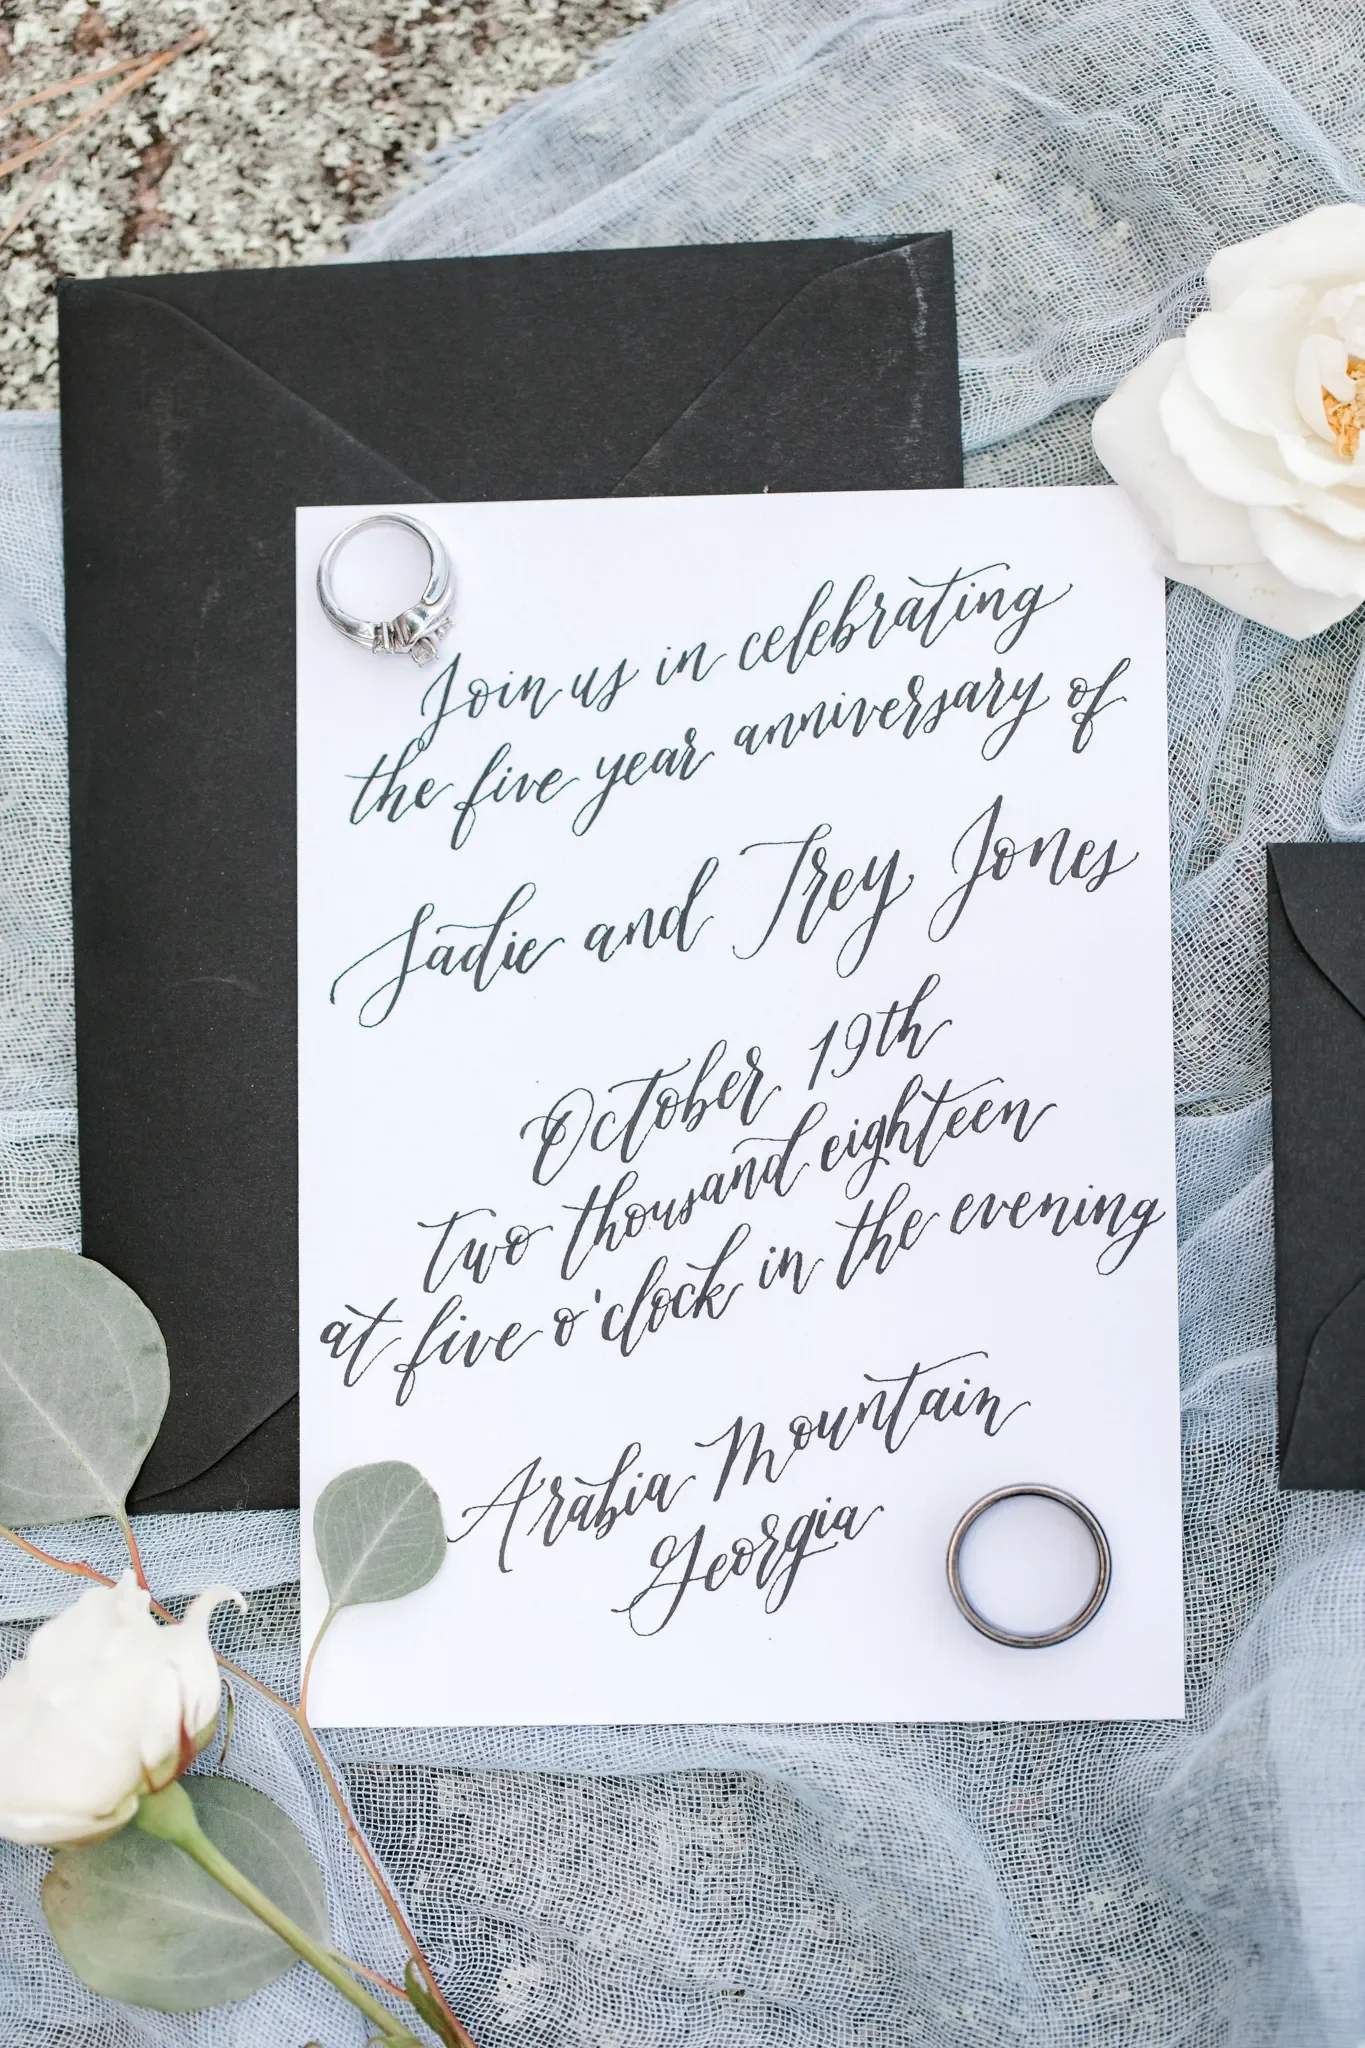 Join us in celebrating
the five year anniversary of
Sadie and Trey Jones
October 19th
two thousand eighteen
at five o'clock in the evening
Arabia Mountain
Georgia